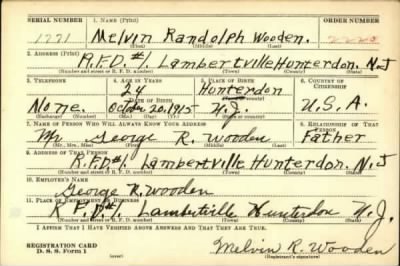 SERIAL NUMBER 1. NAME (Print) ORDER NUMBER
1771 Melvin Randolph Wooden.
(First) (Middle) (Last)
2. ADDRESS (Print)
R.F.D. #1, Lambertville Hunterdon. N.J
(Number and street or R. F. D. number) (Town) (County) (State)
3. TELEPHONE 4. AGE IN YEARS 5. PLACE OF BIRTH 6. COUNTRY OF CITIZENSHIP
24 Hunterdon
DATE OF BIRTH (Town or county)
None. 20, 1915 N.J. U.S.A.
(Exchange) (Number) (Mo.) (Day) (Yr.) (State or country)
7. NAME OF PERSON WHO WILL ALWAYS KNOW YOUR ADDRESS 8. RELATIONSHIP OF THAT PERSON
Mr George R. Wooden Father
(Mr., Mrs., Miss) (First) (Middle) (Last)
9. ADDRESS OF THAT PERSON
R.F.D#1 Lambertville Hunterdon. N.J
(Number and street or R. F. D. number) (Town) (County) (State)
10. EMPLOYER'S NAME
George R. Wooden
11. PLACE OF EMPLOYMENT OR BUSINESS
R.F.D#1 Lambertville Hunterdon N.J.
(Number and street or R. F. D. number) (Town) (County) (State)
I AFFIRM THAT I HAVE VERIFIED ABOVE ANSWERS AND THAT THEY ARE TRUE.
REGISTRATION CARD
D. S. S. Form 1 Melvin R. Wooden
(Registrant's signature)